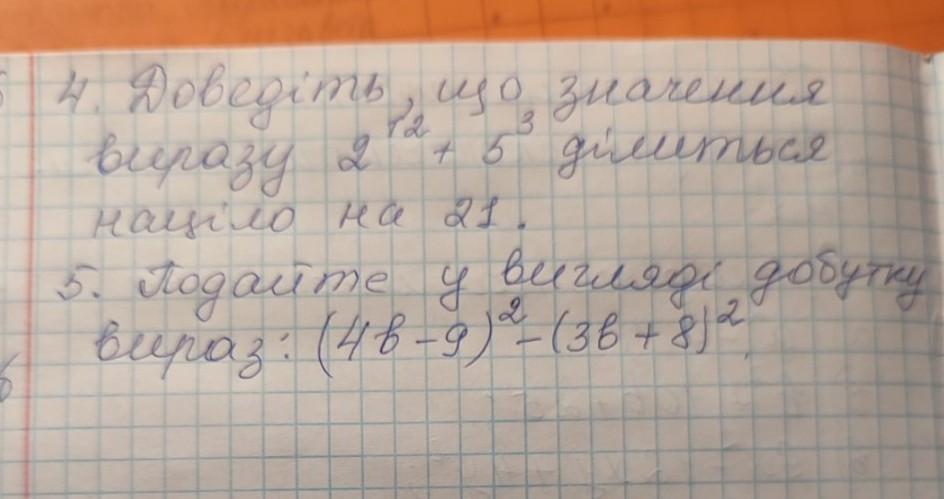 4. Доведіть, що значення
виразу 2¹² + 5³ ділиться
націло на 21.
5. Подайте у вигляді добутку
вираз: (4b - 9)² - (3b + 8)².